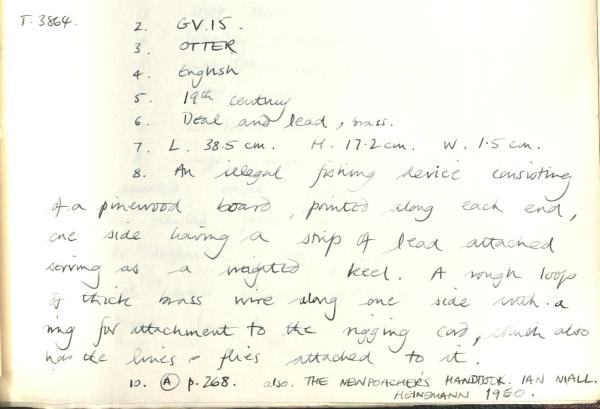 T. 3864.
2. GV.15.
3. OTTER
4. English
5. 19th century
6. Deal and lead, brass.
7. L. 38.5 cm. H. 17.2 cm. W. 1.5 cm.
8. An illegal fishing device consisting
of a pinewood board, pointed along each end,
one side having a strip of lead attached
serving as a weighted keel. A rough loop
of thick brass wire along one side with a
ring for attachment to the rigging cord, which also
has the lines & flies attached to it.
10. (A) p.268. also. THE NEW POACHER'S HANDBOOK. IAN NIALL.
HEINEMANN 1960.